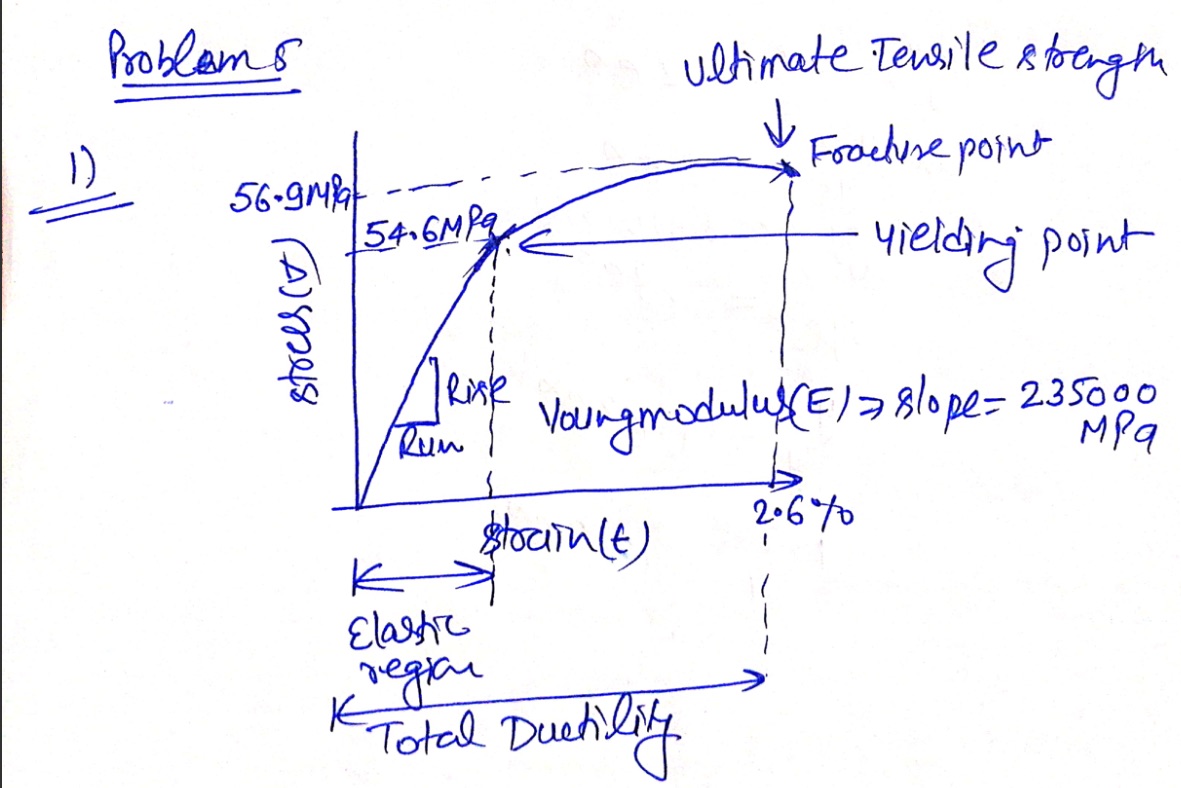 Problem 5
1)
Ultimate Tensile strength
Fracture point
56.9MPa
54.6MPa
Yielding point
Stress(σ)
Rise
Run
Young modulus(E) ⇒ slope = 235000
MPa
2.6%
Strain(ε)
Elastic
region
Total Ductility